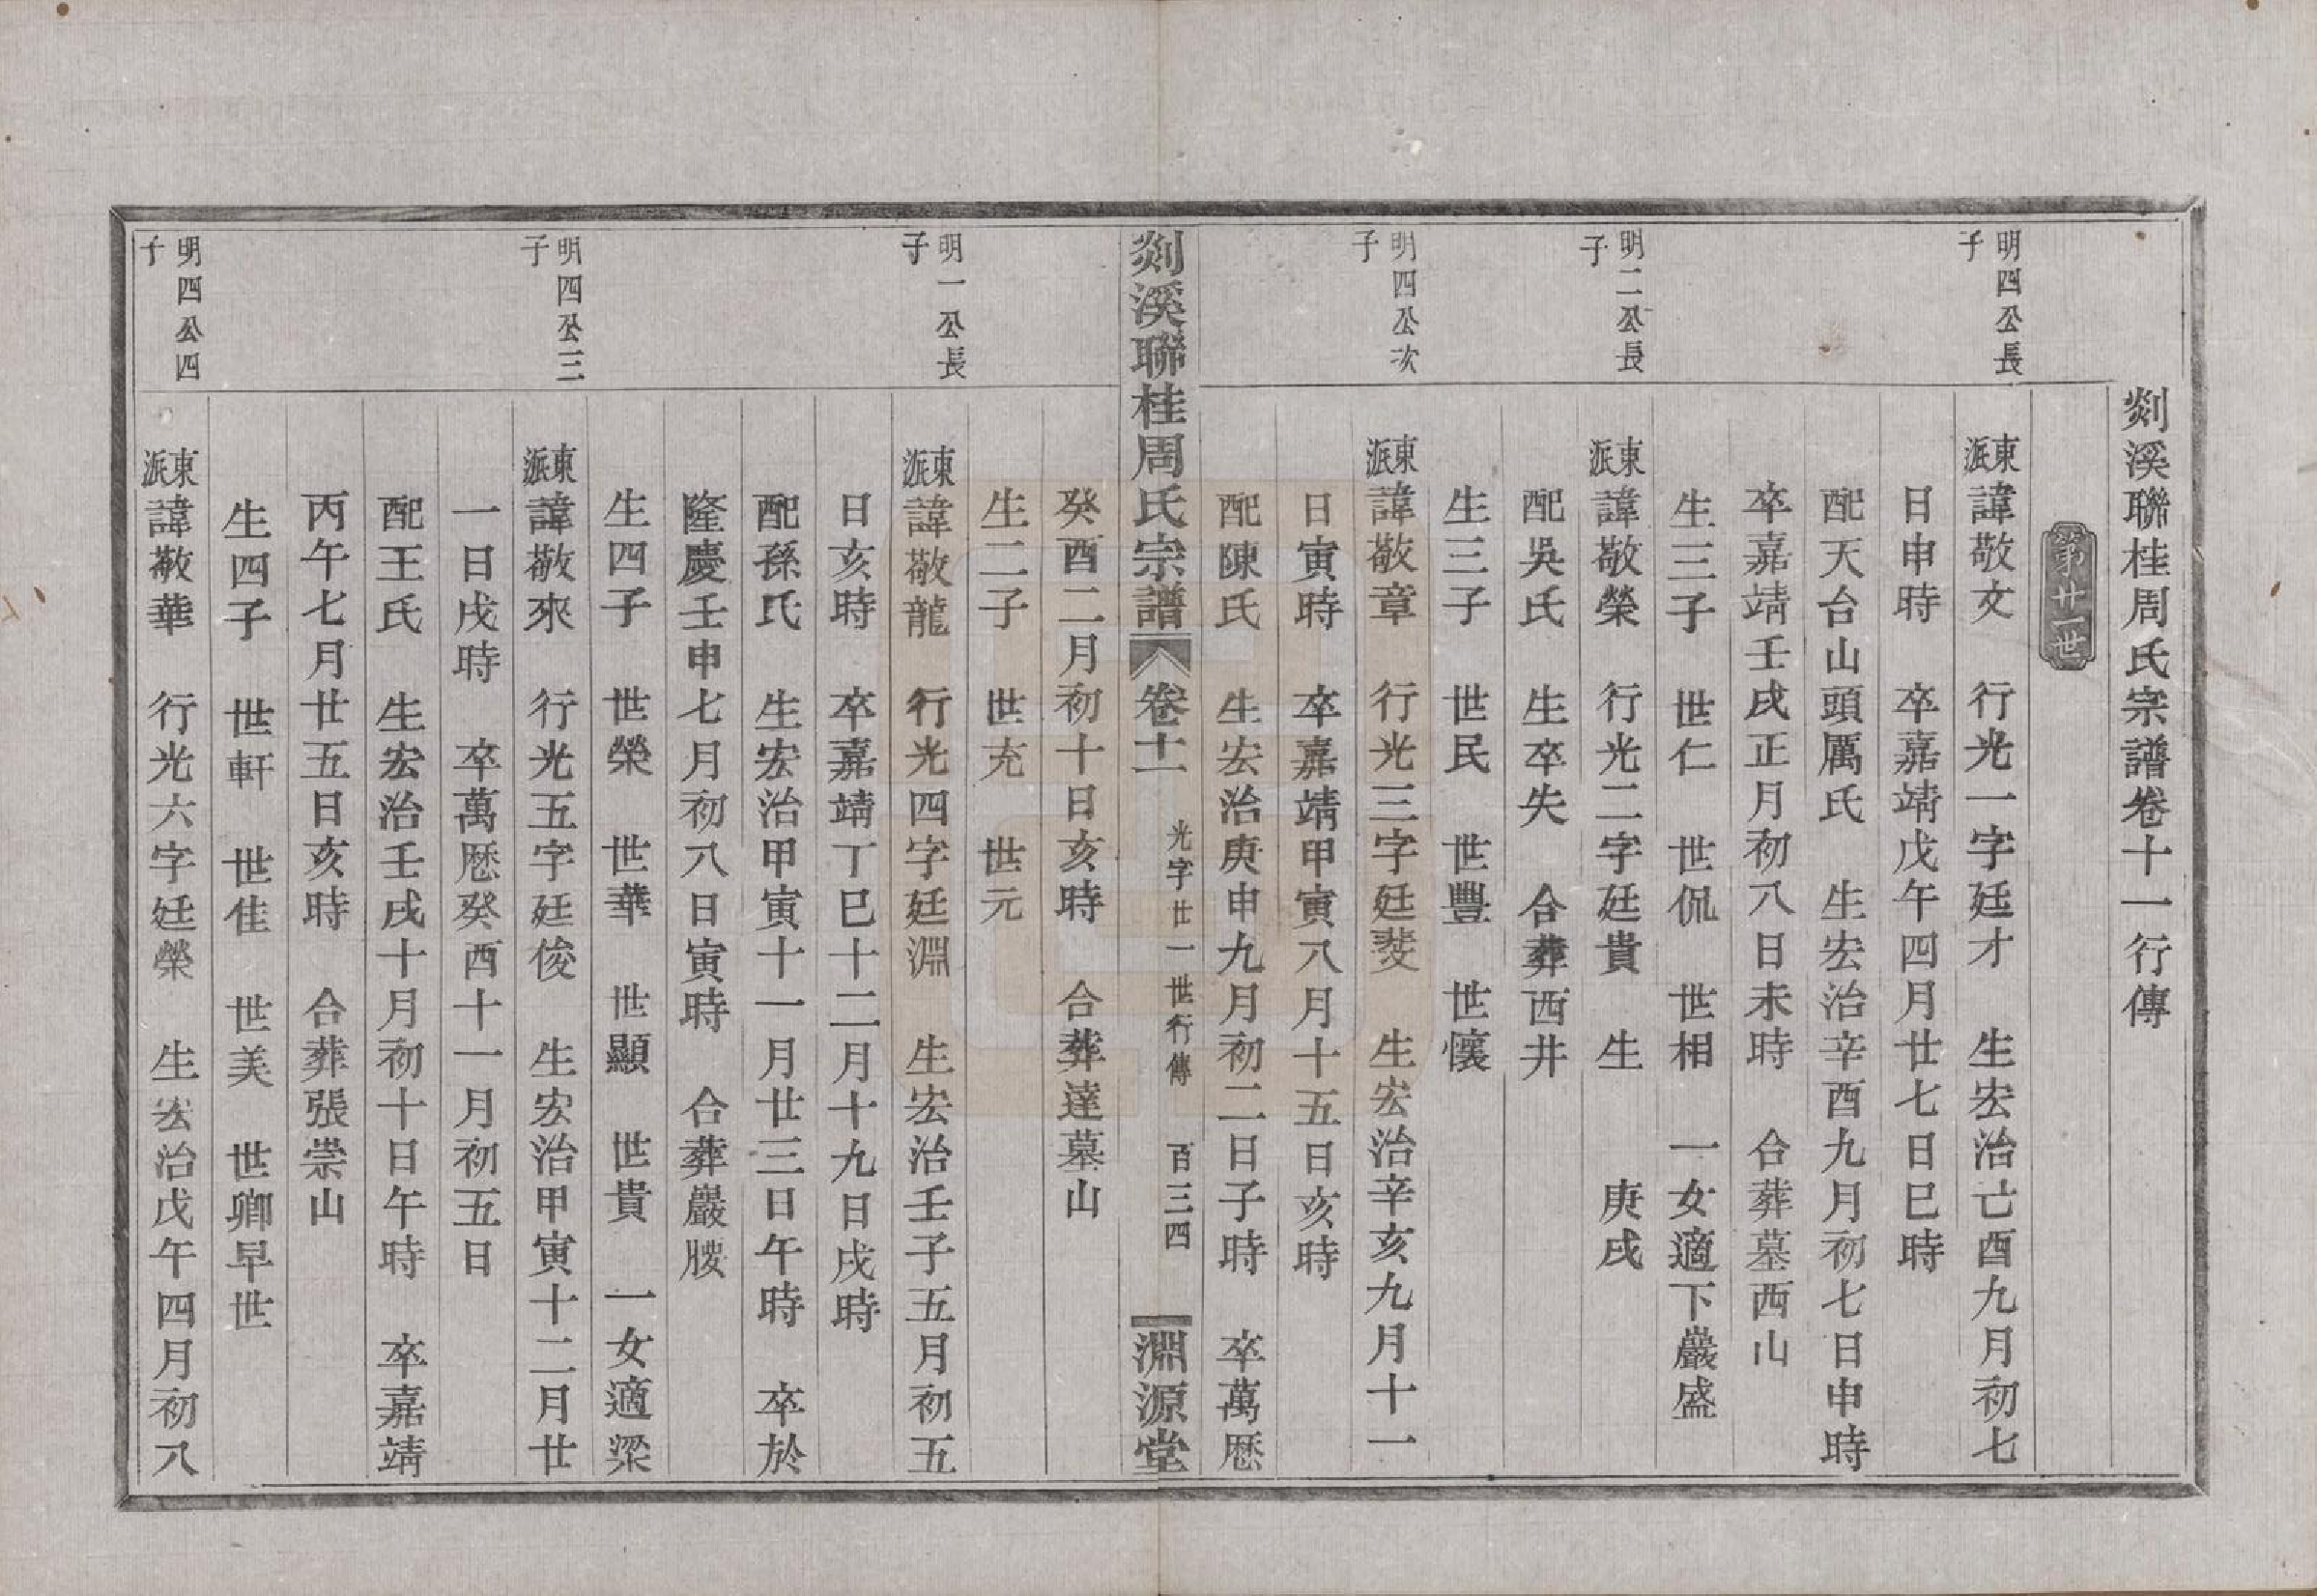 剡溪聯桂周氏宗譜卷十一行傳
第廿一世
明四公長子
東派諱敬文　行光一字廷才　生宏治亡酉九月初七
日申時　卒嘉靖戊午四月廿七日巳時
配天台山頭厲氏　生宏治辛酉九月初七日申時
卒嘉靖壬戌正月初八日未時　合葬墓西山
生三子　世仁　世侃　世相　一女適下嚴盛
明二公長子
東派諱敬榮　行光二字廷貴　生　　庚戌
配吳氏　生卒失　合葬西井
生三子　世民　世豐　世懷
明四公次子
東派諱敬章　行光三字廷斐　生宏治辛亥九月十一
日寅時　卒嘉靖甲寅八月十五日亥時
配陳氏　生宏治庚申九月初二日子時　卒萬歷
剡溪聯桂周氏宗譜　卷十一　光字廿一世行傳　百三四　淵源堂
癸酉二月初十日亥時　合葬達墓山
生二子　世充　世元
明一公長子
東派諱敬龍　行光四字廷淵　生宏治壬子五月初五
日亥時　卒嘉靖丁巳十二月十九日戌時
配孫氏　生宏治甲寅十一月廿三日午時　卒於
隆慶壬申七月初八日寅時　合葬嚴𦝫
生四子　世榮　世華　世顯　世貴　一女適梁
明四公三子
東派諱敬來　行光五字廷俊　生宏治甲寅十二月廿
一日戌時　卒萬歷癸酉十一月初五日
配王氏　生宏治壬戌十月初十日午時　卒嘉靖
丙午七月廿五日亥時　合葬張崇山
生四子　世軒　世佳　世美　世卿早世
明四公四子
東派諱敬華　行光六字廷榮　生宏治戊午四月初八